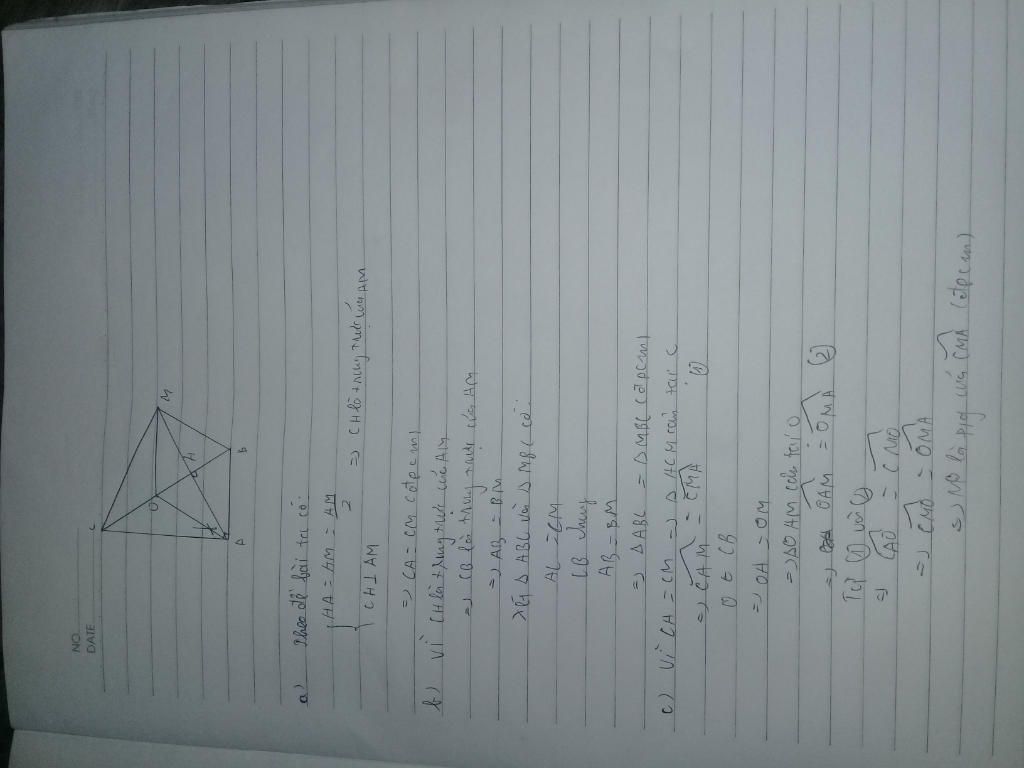 NO.
DATE
C
M
O
H
A
B
a) Theo đề bài ta có:
{ HA = HM = AM/2
{ CH ⊥ AM => CH là trung trực của AM
=> CA = CM (đpcm)
b) Vì CH là trung trực của AM
=> CB là trung trực của AM
=> AB = BM
Xét Δ ABC và Δ MBC có:
AC = CM
CB chung
AB = BM
=> Δ ABC = Δ MBC (đpcm)
c) Vì CA = CM => Δ ACM cân tại C
=> CAM = CMA (1)
O ∈ CB
=> OA = OM
=> ΔOAM cân tại O
=> OAM = OMA (2)
Từ (1) và (2)
=> CAO = CMO
=> CMO = OMA
=> MO là pg của CMA (đpcm)